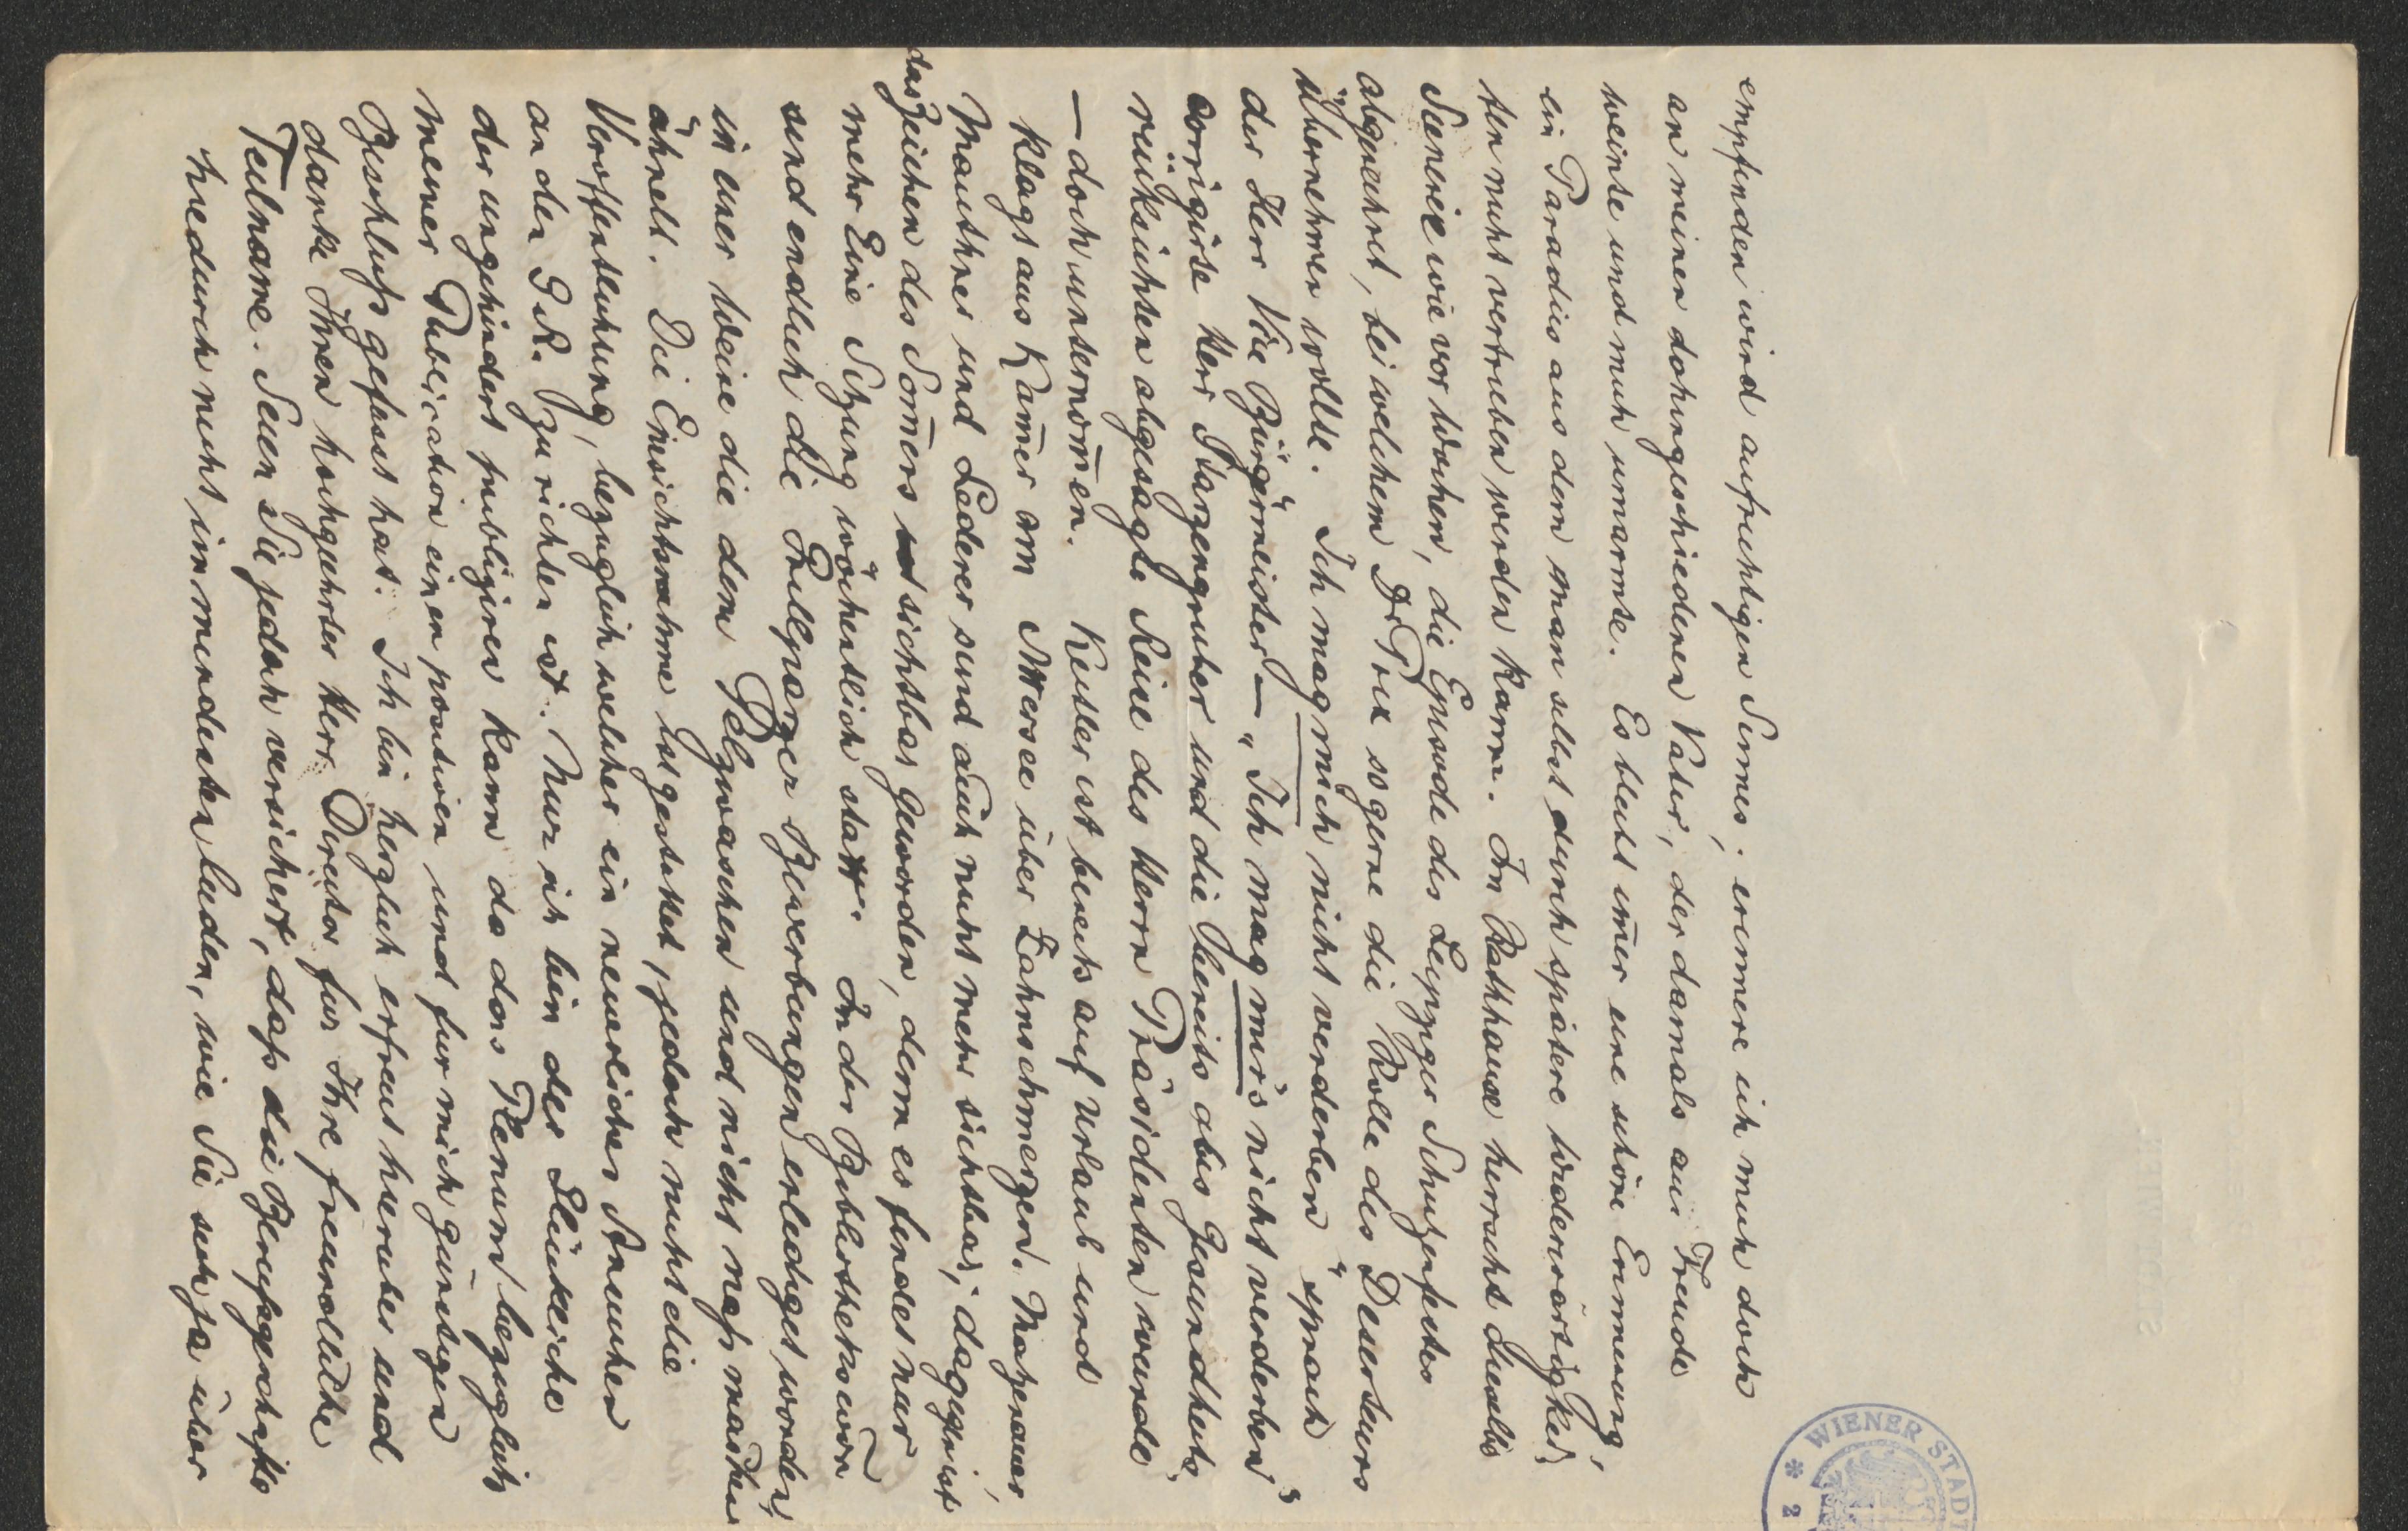 empfinden wird aufrichtigen Sinnes; erinnere ich mich doch
an meinen dahingeschiedenen Vater, der damals aus Freude
weinte und mich umarmte. Es bleibt im̄er eine schöne Erinnerung,
ein Paradies aus dem man selbst durch spätere Widerwärtigkei¬
ten nicht vertrieben werden kann. Im Rathhause herrscht dieselbe
Scenerie wie vor Wochen, die Episode des Leipziger Schützenfestes
abgerechnet, bei welchem Dr Prix so gerne die Rolle des Deserteurs
übernehmen wollte. Ich mag mich nicht verderben" sprach
der Herr Vice Bürgermeister – „Ich mag mir's nicht verderben"
corrigirte Herr Stanzengruber und die bereits aus Gesundheits¬
rücksichten abgesagte Reise des Herrn Präsidenten wurde
– doch unternom̄en. Kessler ist bereits auf Urlaub und
klagt aus Kam̄er am Attersee über Zahnschmerzen. Matzenauer,
Mauthner und Lederer sind auch nicht mehr sichtbar; dagegen ist
das Zeichen des Som̄ers sichtbar geworden, denn es findet nur
mehr Eine Sitzung wöchentlich statt. In der Bibliothekscom̄
sind endlich die Grillparzer Bewerbungen erledigt worden,
in einer Weise die dem Pelzwaschen und nicht naß machen
ähnelt. Die Einsichtsnahme ist gestattet, jedoch nicht die
Veröffentlichung, bezüglich welcher ein neuerliches Ansuchen
an den G.R. zu richten ist. Nur ich bin der Glückliche
der ungehindert publiziren kann da das Plenum bezüglich
meiner Publication einen positiven und für mich günstigen
Beschluß gefasst hat. Ich bin herzlich erfreut hierüber und
danke Ihnen hochgeehrter Herr Director für Ihre freundliche
Teilname. Seien Sie jedoch versichert, daß die Berufsgeschäfte
hiedurch nicht im mindesten leiden, wie Sie sich ja über
WIENER STADT
2